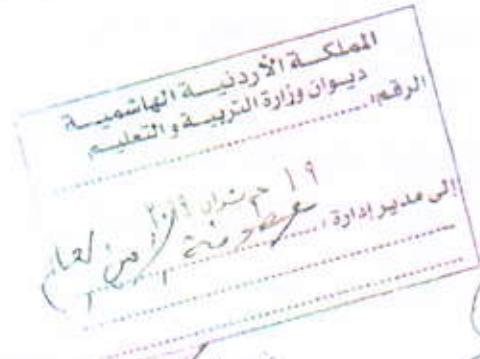 المملكة الأردنية الهاشمية
ديوان وزارة التربية والتعليم
الرقم:
١٩ حزيران ٢٠١٩
إلى مدير إدارة: